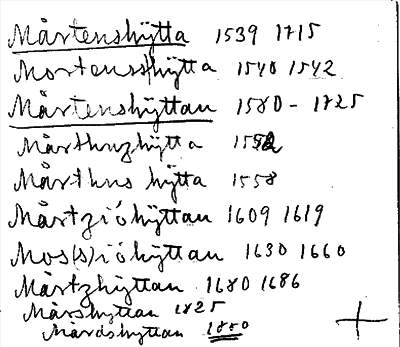 Mårtenshÿtta 1539 1715
Mortensshÿtta 1540 1542
Mårtenshÿttan 1580-1725
Mårthnzhÿtta
Mårthns hÿtta 1558
Mårtzióhÿttan 1609 1619
Mos(s)ióhÿttan 1630 1660
Mårtzhÿttan 1680 1686
Mårshyttan 1825
Mårdshyttan 1880